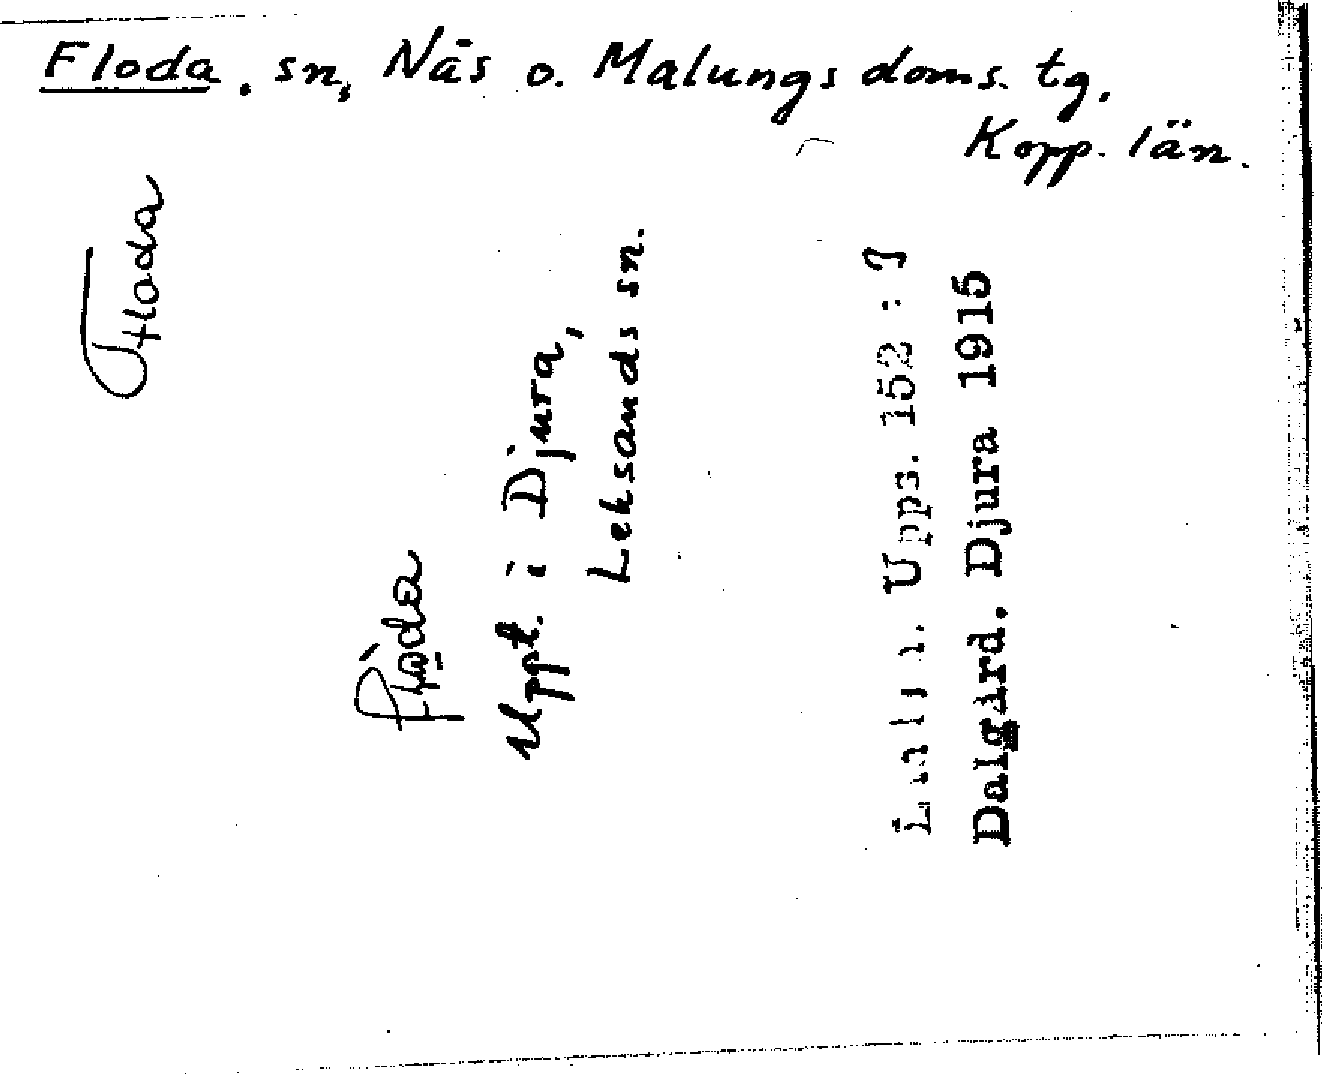 Floda. sn, Näs o. Malungs doms. tg.
Kopp. län.
Floda
Uppt. i Djura,
Leksands sn.
Upps. 152 : 7
Dalgård. Djura 1915